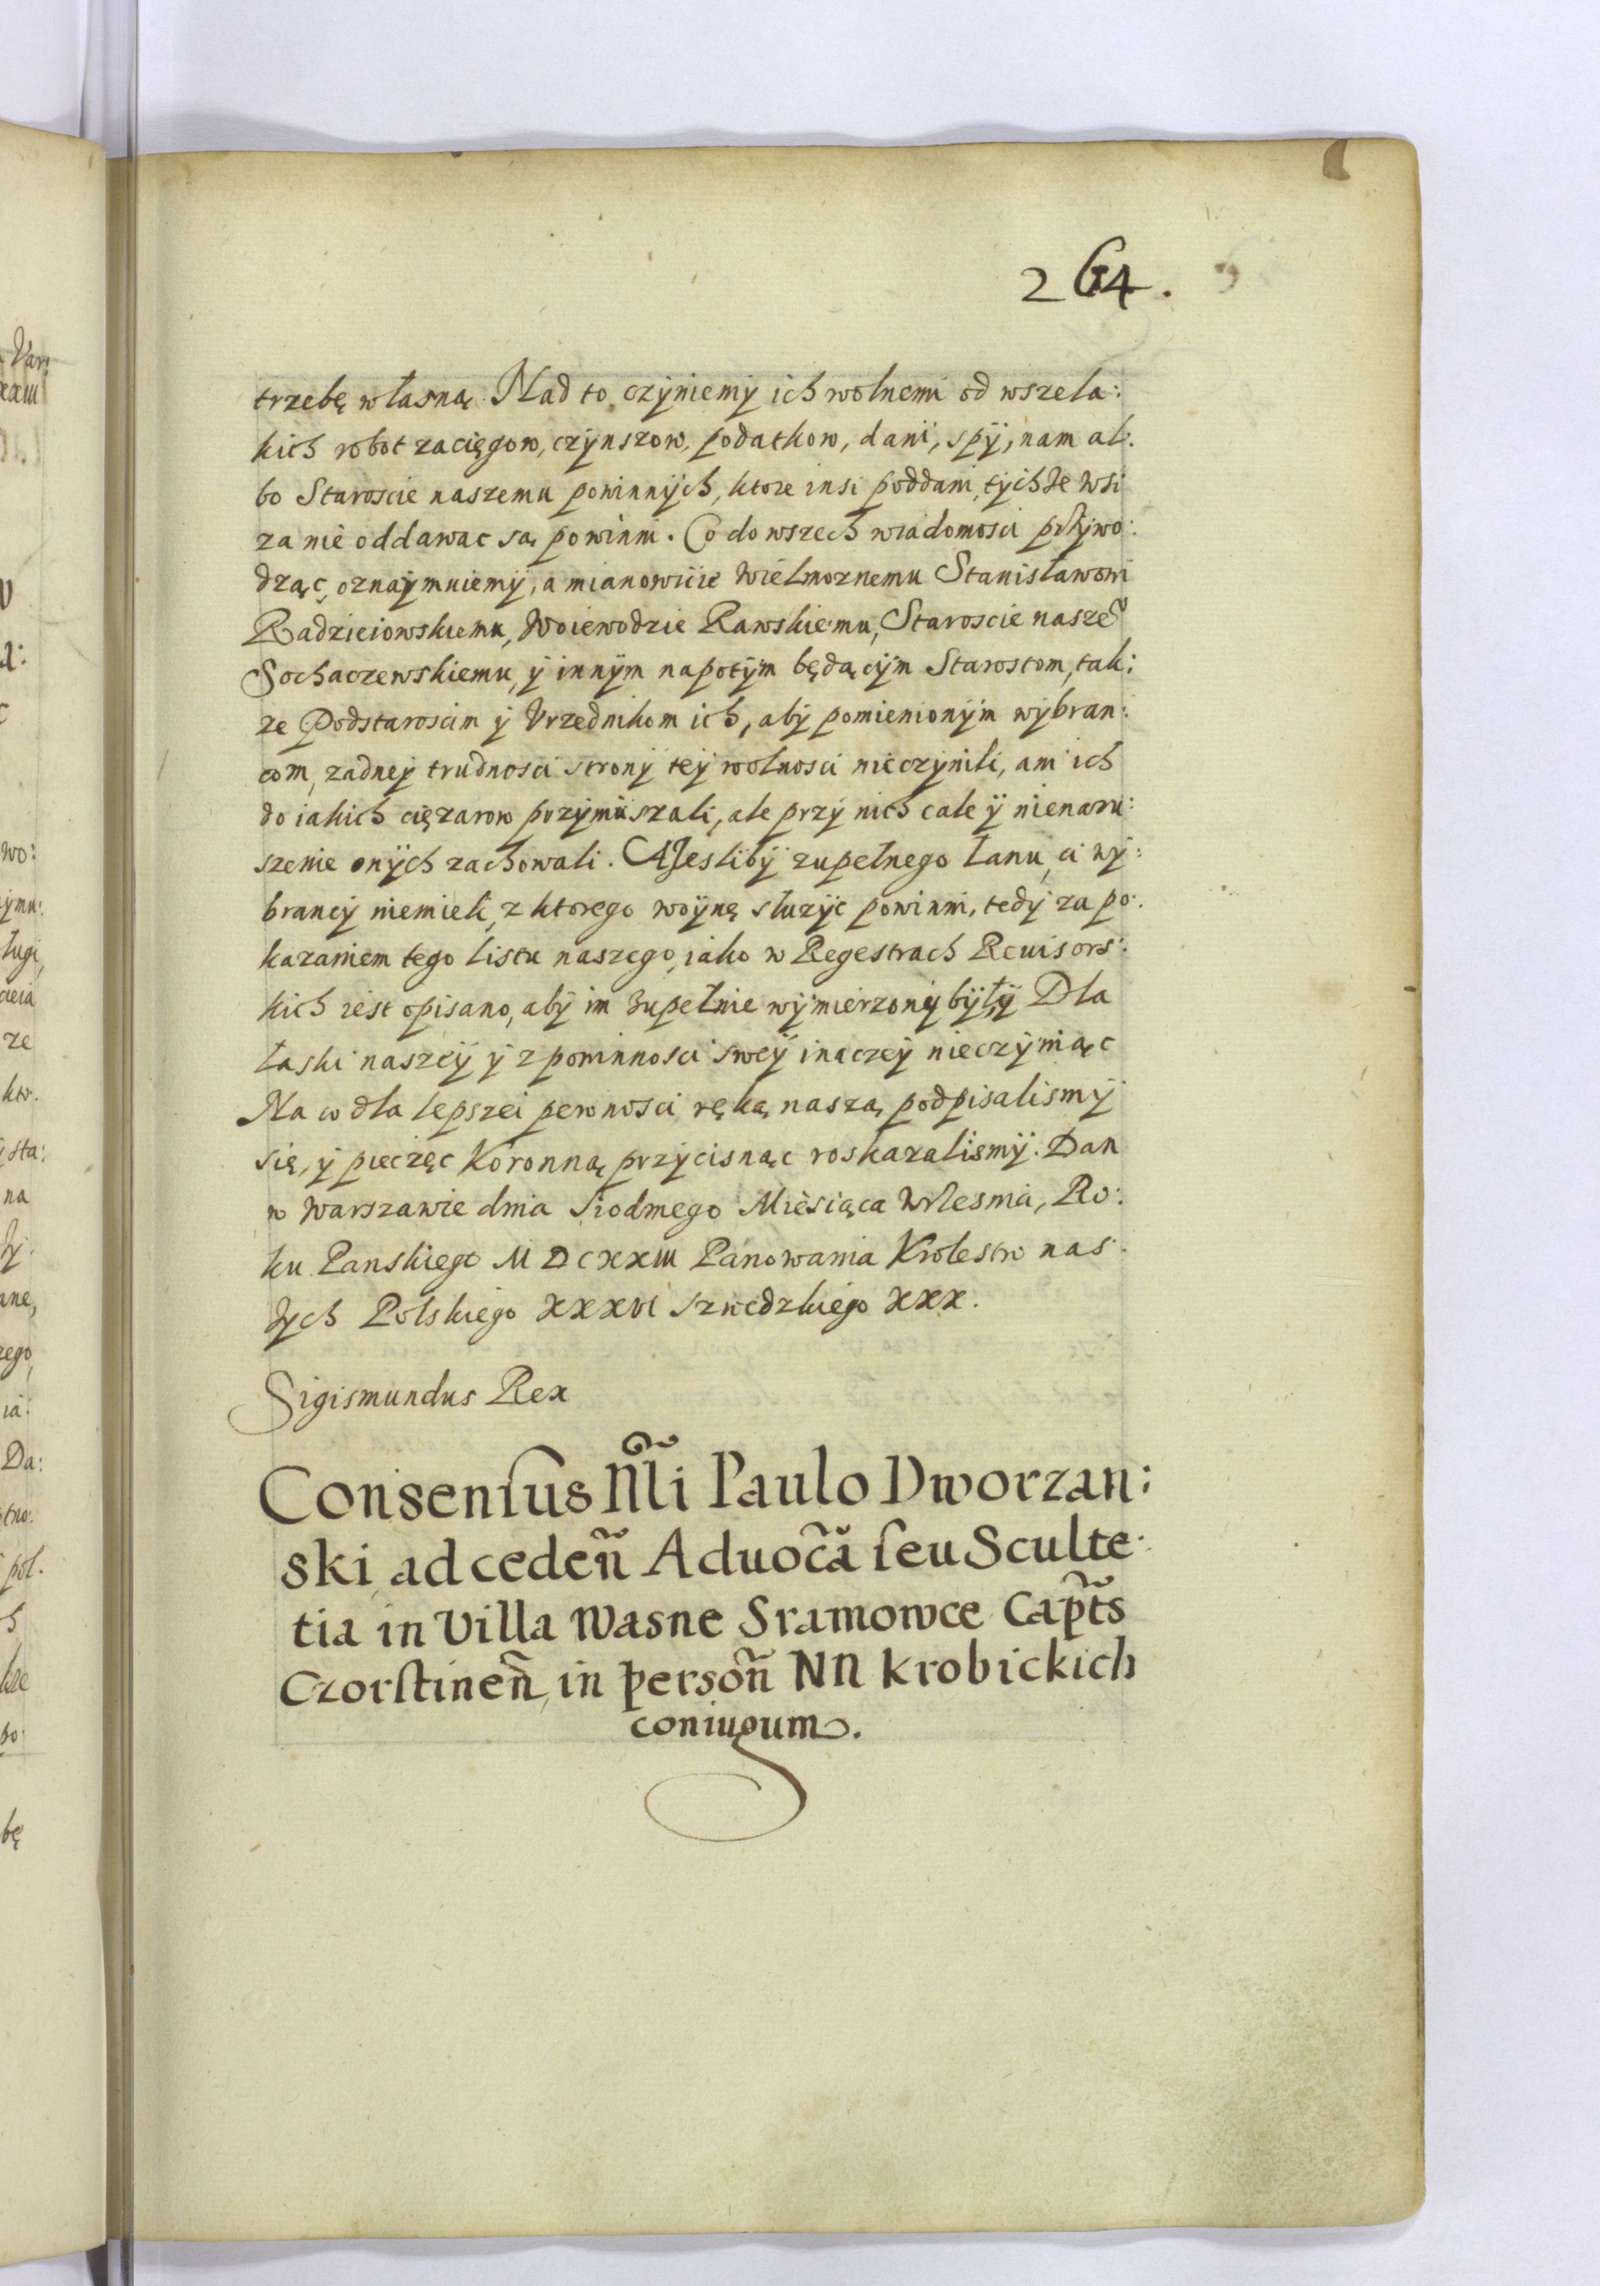 264.
trzebę własną. Nad to czyniemy ich wolnemi od wszela:
kich robot zacięgow, czynszow, podatkow, dani, spÿ, nam al:
bo Staroscie naszemu powinnych, ktore insi poddani tychże wsi
za nie oddawac są powinni. Co do wszech wiadomosci przywo:
dząc, oznaymuiemy, a mianowicie Wielmoznemu Stanisławowi
Radzieiowskiemu, Woiewodzie Rawskiemu, Staroscie nasze͠
Sochaczewskiemu, y innym napotym będącym Starostom, tak:
ze Podstaroscim y Vrzednikom ich, aby pomienionym wybran:
com, zadney trudnosci strony tey wolnosci nieczynili, ani ich
do iakich cięzarow przymuszali, ale przy nich cale y nienaru:
szenie onych zachowali. A Jesliby zupełnego łanu, ci wy:
brancy niemieli, z ktorego woynę słuzyc powinni, tedy za po:
kazaniem tego listu naszego, iako w Regestrach Reuisors:
kich iest opisano, aby im zupełnie wymierzony były Dla
łaski naszey y z powinnosci swey inaczey nieczyniąc
Na co dla lepszei pewnosci ręką naszą podpisalismy
się, y pieczęc Koronną przycisnąc roskazalismy. Dan
w Warszawie dnia siodmego Miesiąca Wrzesnia, Ro:
ku Panskiego MDCXXIII Panowania Krolestw nas:
zych Polskiego XXXVI szwedzkiego XXX.
Sigismundus Rex
Consensus Nłi Paulo Dworzan:
ski ad cedeñ Aduocã seu Sculte:
tia in Villa Wasne Sramowce Capt̃s
Czorstineñ in persoñ NN Krobickich
coniugum.